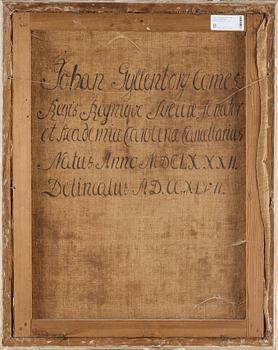 Johan Gyllenborg Comes
Regis Regnique Sveciæ Senator
et Academiæ Carolinæ Cancellarius
Natus Anno MDCLXXXII.
Delineatus AD.CC.XLVII.